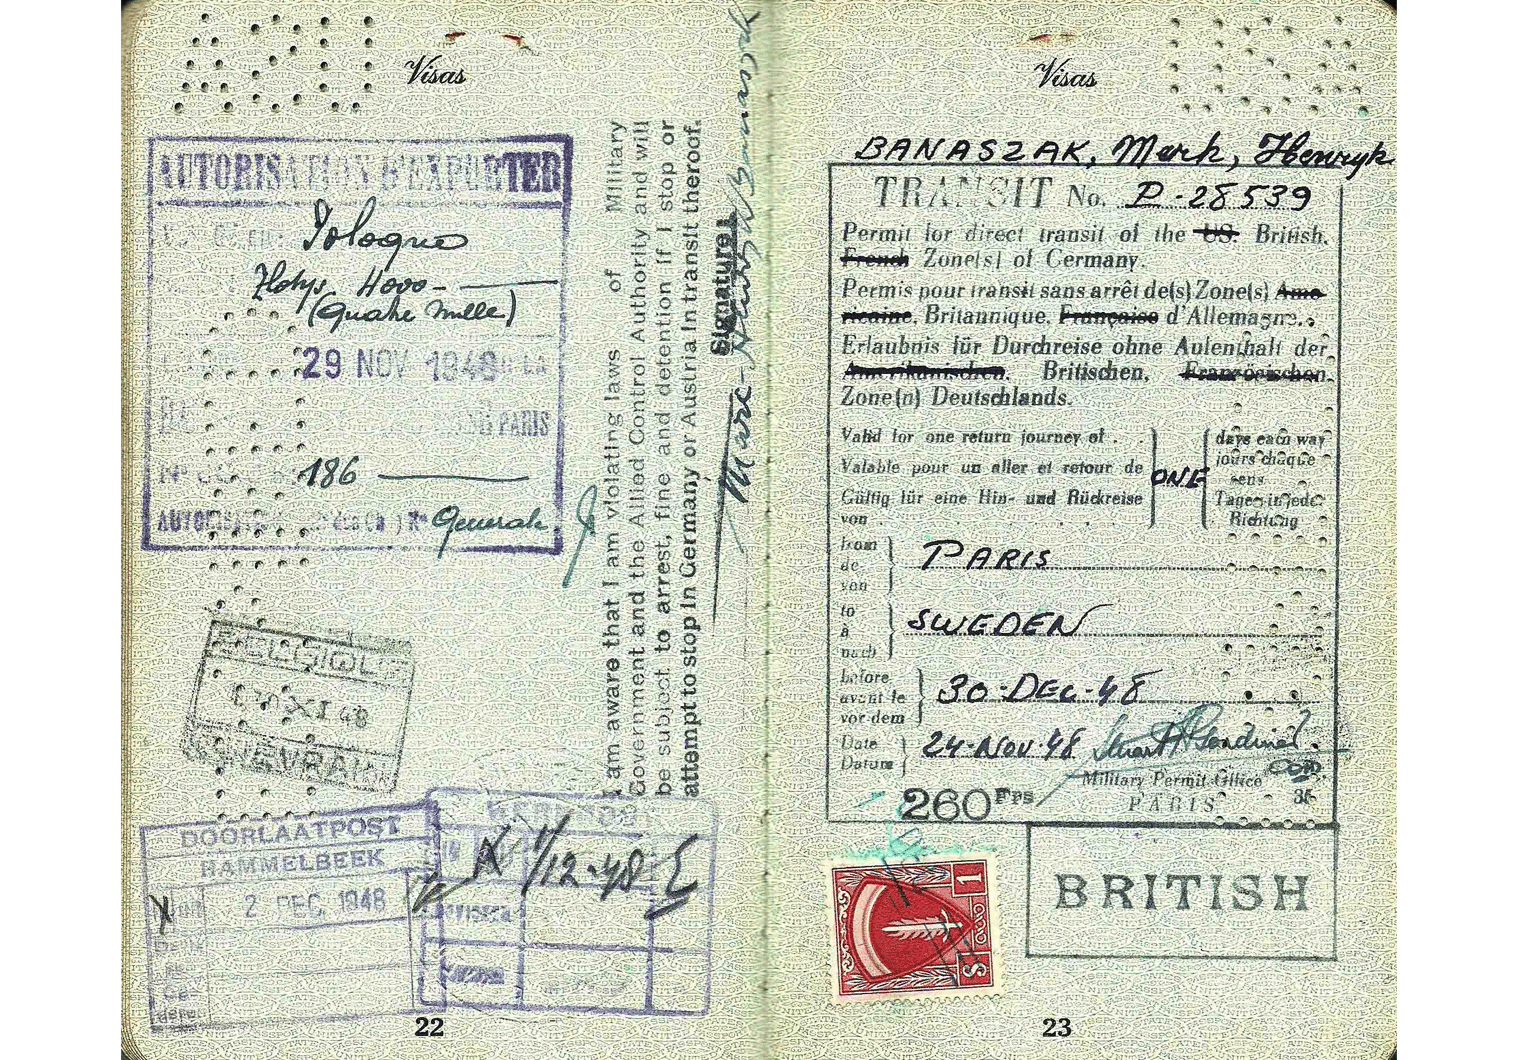 Visas
AUTORISATION D'EXPORTER
Pologne
Zlotys
(Quatre mille)
29 NOV 1948
PARIS
186
AUTORISATION
Generale
I am aware that I am violating laws of Military
Government and the Allied Control Authority and will
be subject to arrest, fine and detention if I stop or
attempt to stop in Germany or Austria in transit theroof.
Signature
BELGIQUE
XI 48
QUEVRAIN
DOORLAATPOST
HAMMELBEEK
2 DEC. 1948
1/12-48
22
Visas
BANASZAK, Mark, Henryk
TRANSIT No. P-28539
Permit for direct transit of the US. British,
French Zone(s) of Germany.
Permis pour transit sans arrêt de(s) Zone(s) Amé-
ricaine, Britannique, Française d'Allemagne.
Erlaubnis für Durchreise ohne Aufenthalt der
Amerikanischen, Britischen, Französischen,
Zone(n) Deutschlands.
Valid for one return journey of . . days each way
Valable pour un aller et retour de ONE jours chaque sens
Gültig für eine Hin- und Rückreise von Tage in jede Richtung
from de von PARIS
to à nach SWEDEN
before avant le vor dem 30-DEC-48
Date Datum 24-NOV-48
Military Permit Office
PARIS
260 Frs
BRITISH
1
S
23